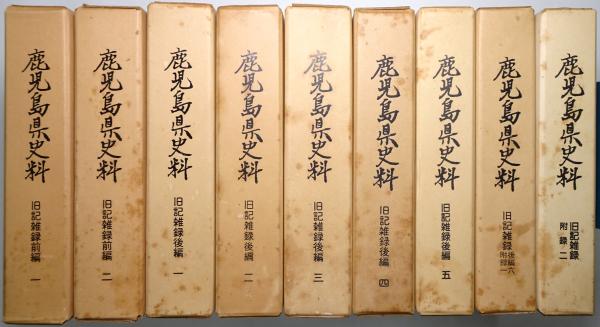 鹿児島県史料
旧記雑録前編 一
鹿児島県史料
旧記雑録前編 二
鹿児島県史料
旧記雑録後編 一
鹿児島県史料
旧記雑録後編 二
鹿児島県史料
旧記雑録後編 三
鹿児島県史料
旧記雑録後編 四
鹿児島県史料
旧記雑録後編 五
鹿児島県史料
旧記雑録 後編六
附録一
鹿児島県史料
旧記雑録
附録二